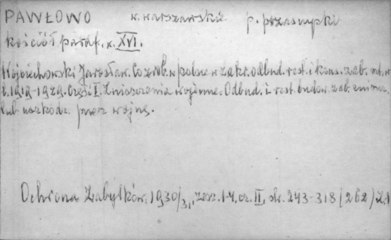 PAWŁOWO w. warszawskie p. przasnyski
kościół paraf. w. XVI.
Wojciechowski Jarosław. Co zrob. w Polsce w zakr. odbud. rest. i kons. zab. w l. 1919-1929. Część I. Zniszczenia wojenne. Odbud. i rest. budow. zab. zniszcz.
lub uszkodz. przez wojnę.
Ochrona Zabytków, 1930/31, zesz. 1-4, cz. II, str. 243-318 /262/